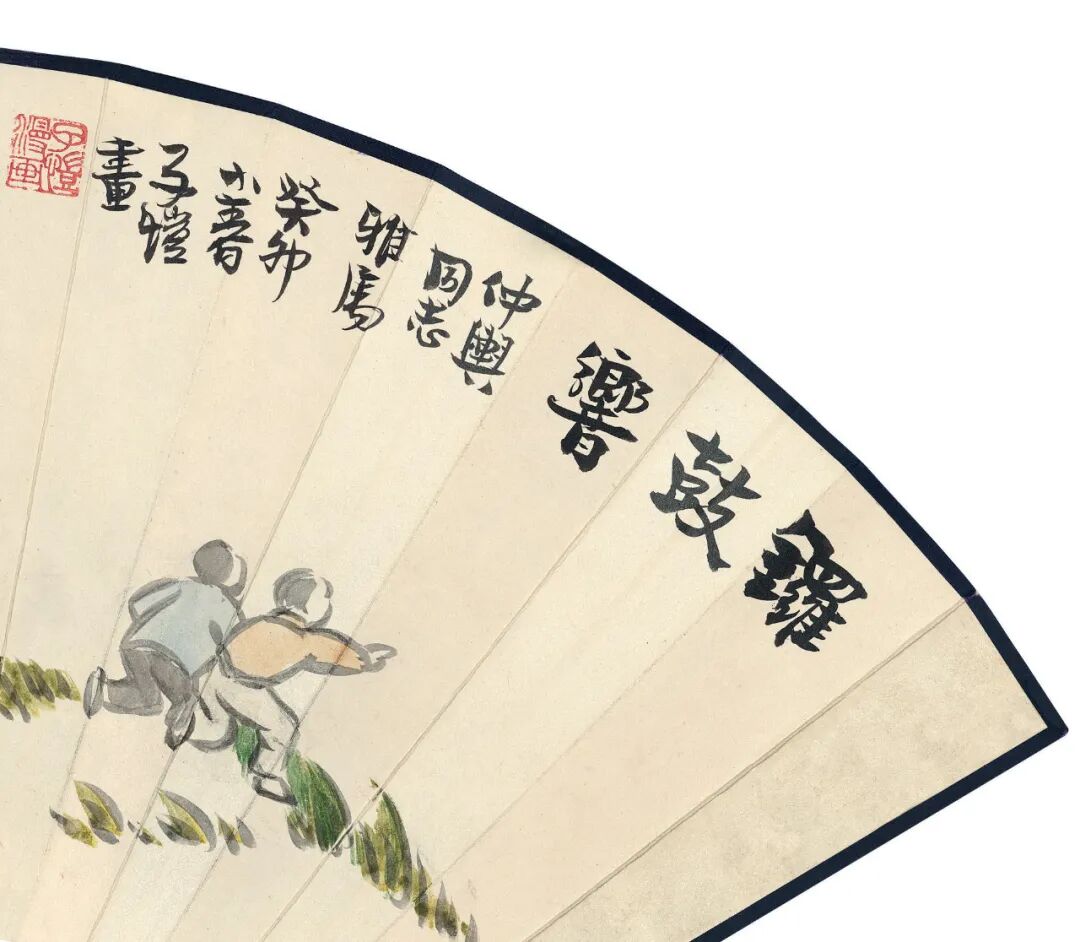 鑼鼓響
仲輿
同志
雅属
癸卯
小春
子愷
畫
子愷漫画